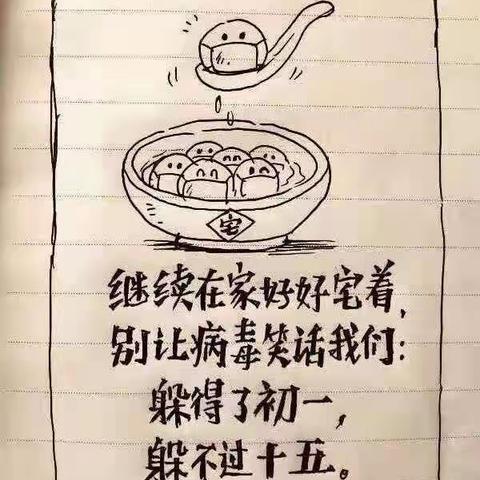 宅
继续在家好好宅着,
别让病毒笑话我们:
躲得了初一,
躲不过十五。